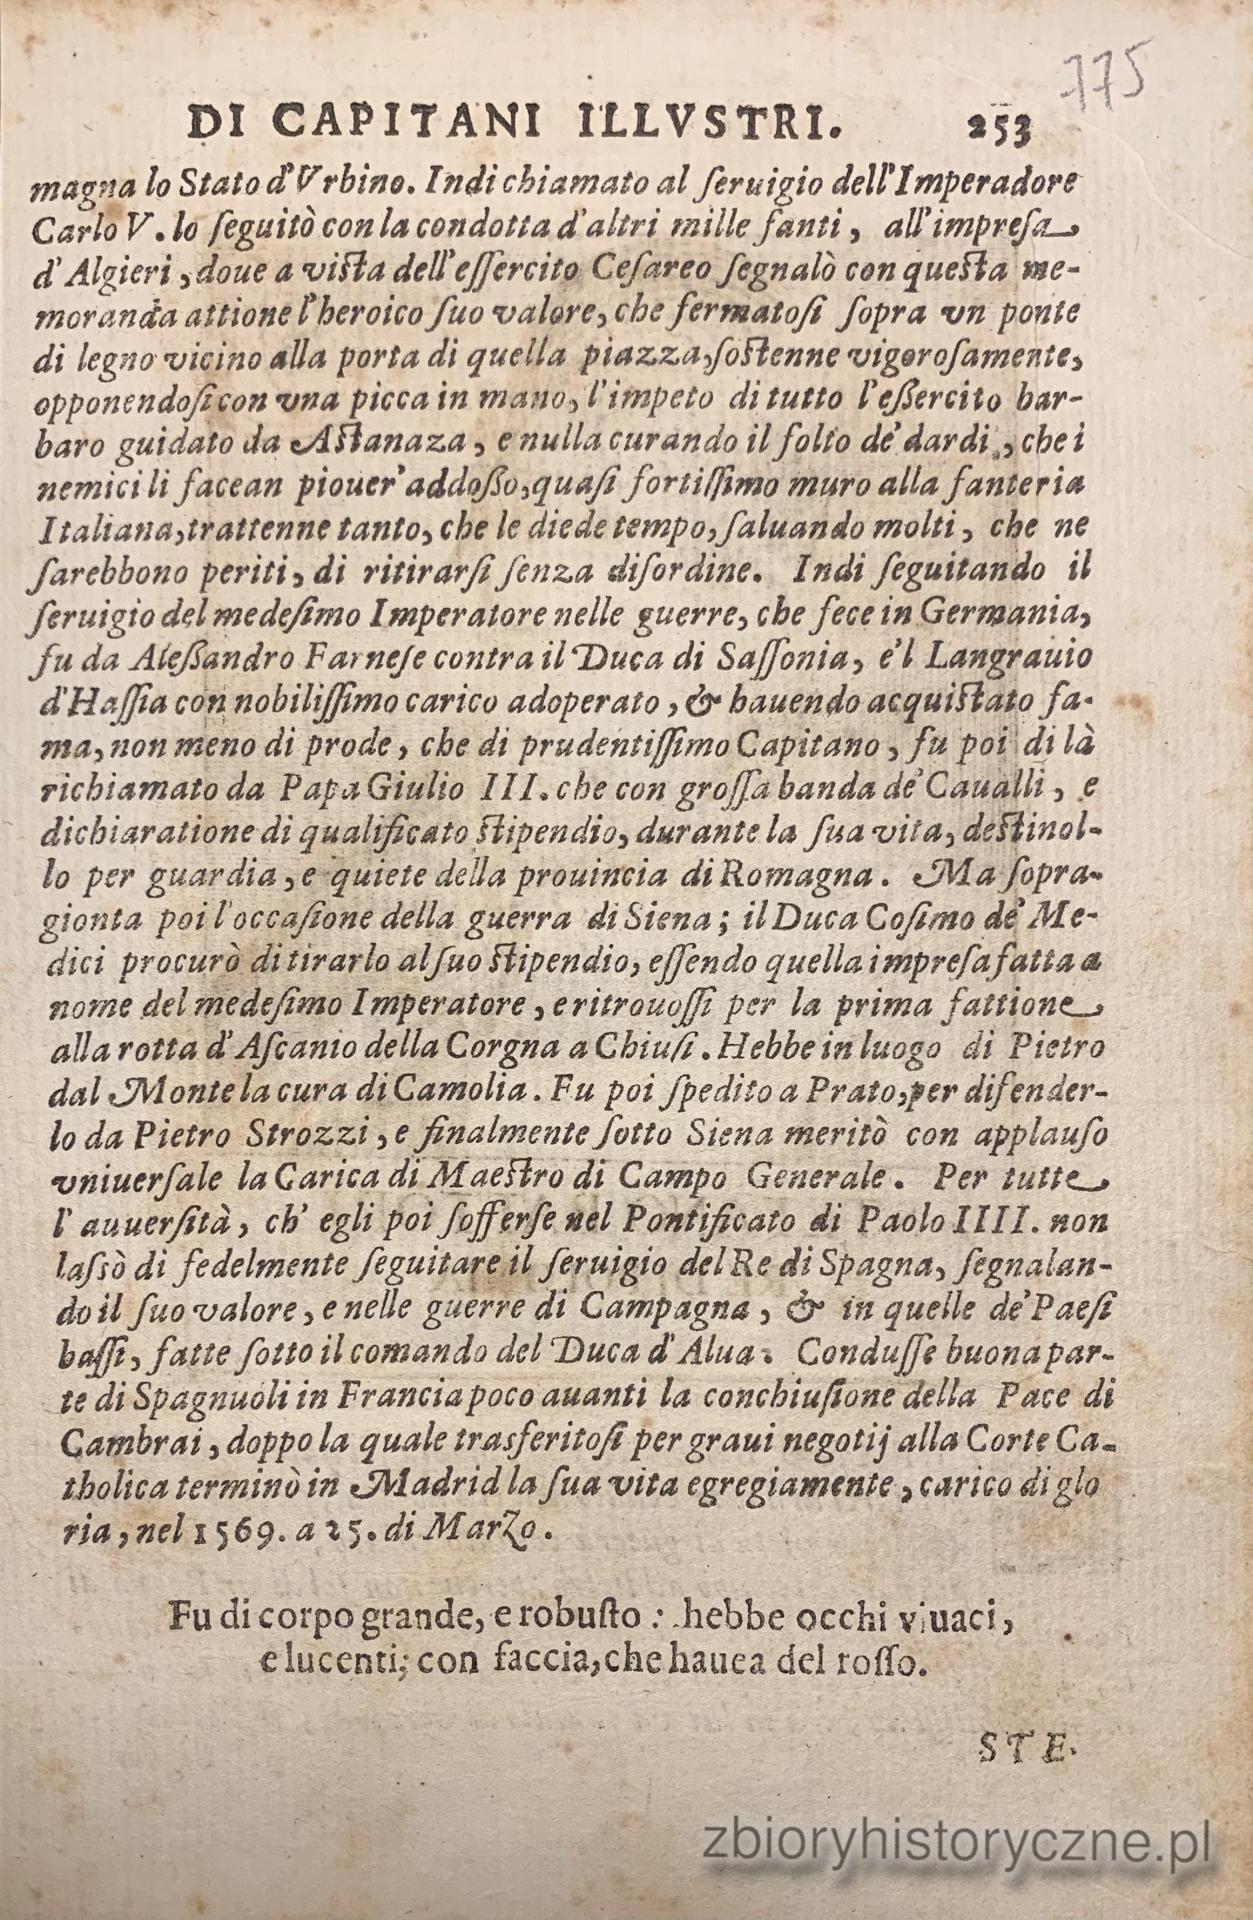 775
DI CAPITANI ILLVSTRI. 253
magna lo Stato d'Vrbino. Indi chiamato al ſeruigio dell'Imperadore
Carlo V. lo ſeguitò con la condotta d'altri mille fanti, all'impreſa
d'Algieri, doue a viſta dell'eſſercito Ceſareo ſegnalò con queſta me-
moranda attione l'heroico ſuo valore, che fermatoſi ſopra vn ponte
di legno vicino alla porta di quella piazza, ſoſtenne vigoroſamente,
opponendoſi con vna picca in mano, l'impeto di tutto l'eßercito bar-
baro guidato da Aſtanaza, e nulla curando il folto de' dardi, che i
nemici li facean piouer' addoßo, quaſi fortiſſimo muro alla fanteria
Italiana, trattenne tanto, che le diede tempo, ſaluando molti, che ne
ſarebbono periti, di ritirarſi ſenza diſordine. Indi ſeguitando il
ſeruigio del medeſimo Imperatore nelle guerre, che fece in Germania,
fu da Aleßandro Farneſe contra il Duca di Saſſonia, e'l Langrauio
d'Haſſia con nobiliſſimo carico adoperato, & hauendo acquiſtato fa-
ma, non meno di prode, che di prudentiſſimo Capitano, fu poi di là
richiamato da Papa Giulio III. che con groſſa banda de' Caualli, e
dichiaratione di qualificato ſtipendio, durante la ſua vita, deſtinol-
lo per guardia, e quiete della prouincia di Romagna. Ma ſopra-
gionta poi l'occaſione della guerra di Siena; il Duca Coſimo de' Me-
dici procurò di tirarlo al ſuo ſtipendio, eſſendo quella impreſa fatta a
nome del medeſimo Imperatore, e ritrouoſſi per la prima fattione
alla rotta d'Aſcanio della Corgna a Chiuſi. Hebbe in luogo di Pietro
dal Monte la cura di Camolia. Fu poi ſpedito a Prato, per difender-
lo da Pietro Strozzi, e finalmente ſotto Siena meritò con applauſo
vniuerſale la Carica di Maeſtro di Campo Generale. Per tutte
l'auuerſità, ch' egli poi ſofferſe nel Pontificato di Paolo IIII. non
laſsò di fedelmente ſeguitare il ſeruigio del Re di Spagna, ſegnalan-
do il ſuo valore, e nelle guerre di Campagna, & in quelle de' Paeſi
baſſi, fatte ſotto il comando del Duca d'Alua. Conduſſe buona par-
te di Spagnuoli in Francia poco auanti la conchiuſione della Pace di
Cambrai, doppo la quale trasferitoſi per graui negotij alla Corte Ca-
tholica terminò in Madrid la ſua vita egregiamente, carico di glo
ria, nel 1569. a 25. di Marzo.
Fu di corpo grande, e robuſto : hebbe occhi viuaci,
e lucenti; con faccia, che hauea del roſſo.
STE-
zbioryhistoryczne.pl